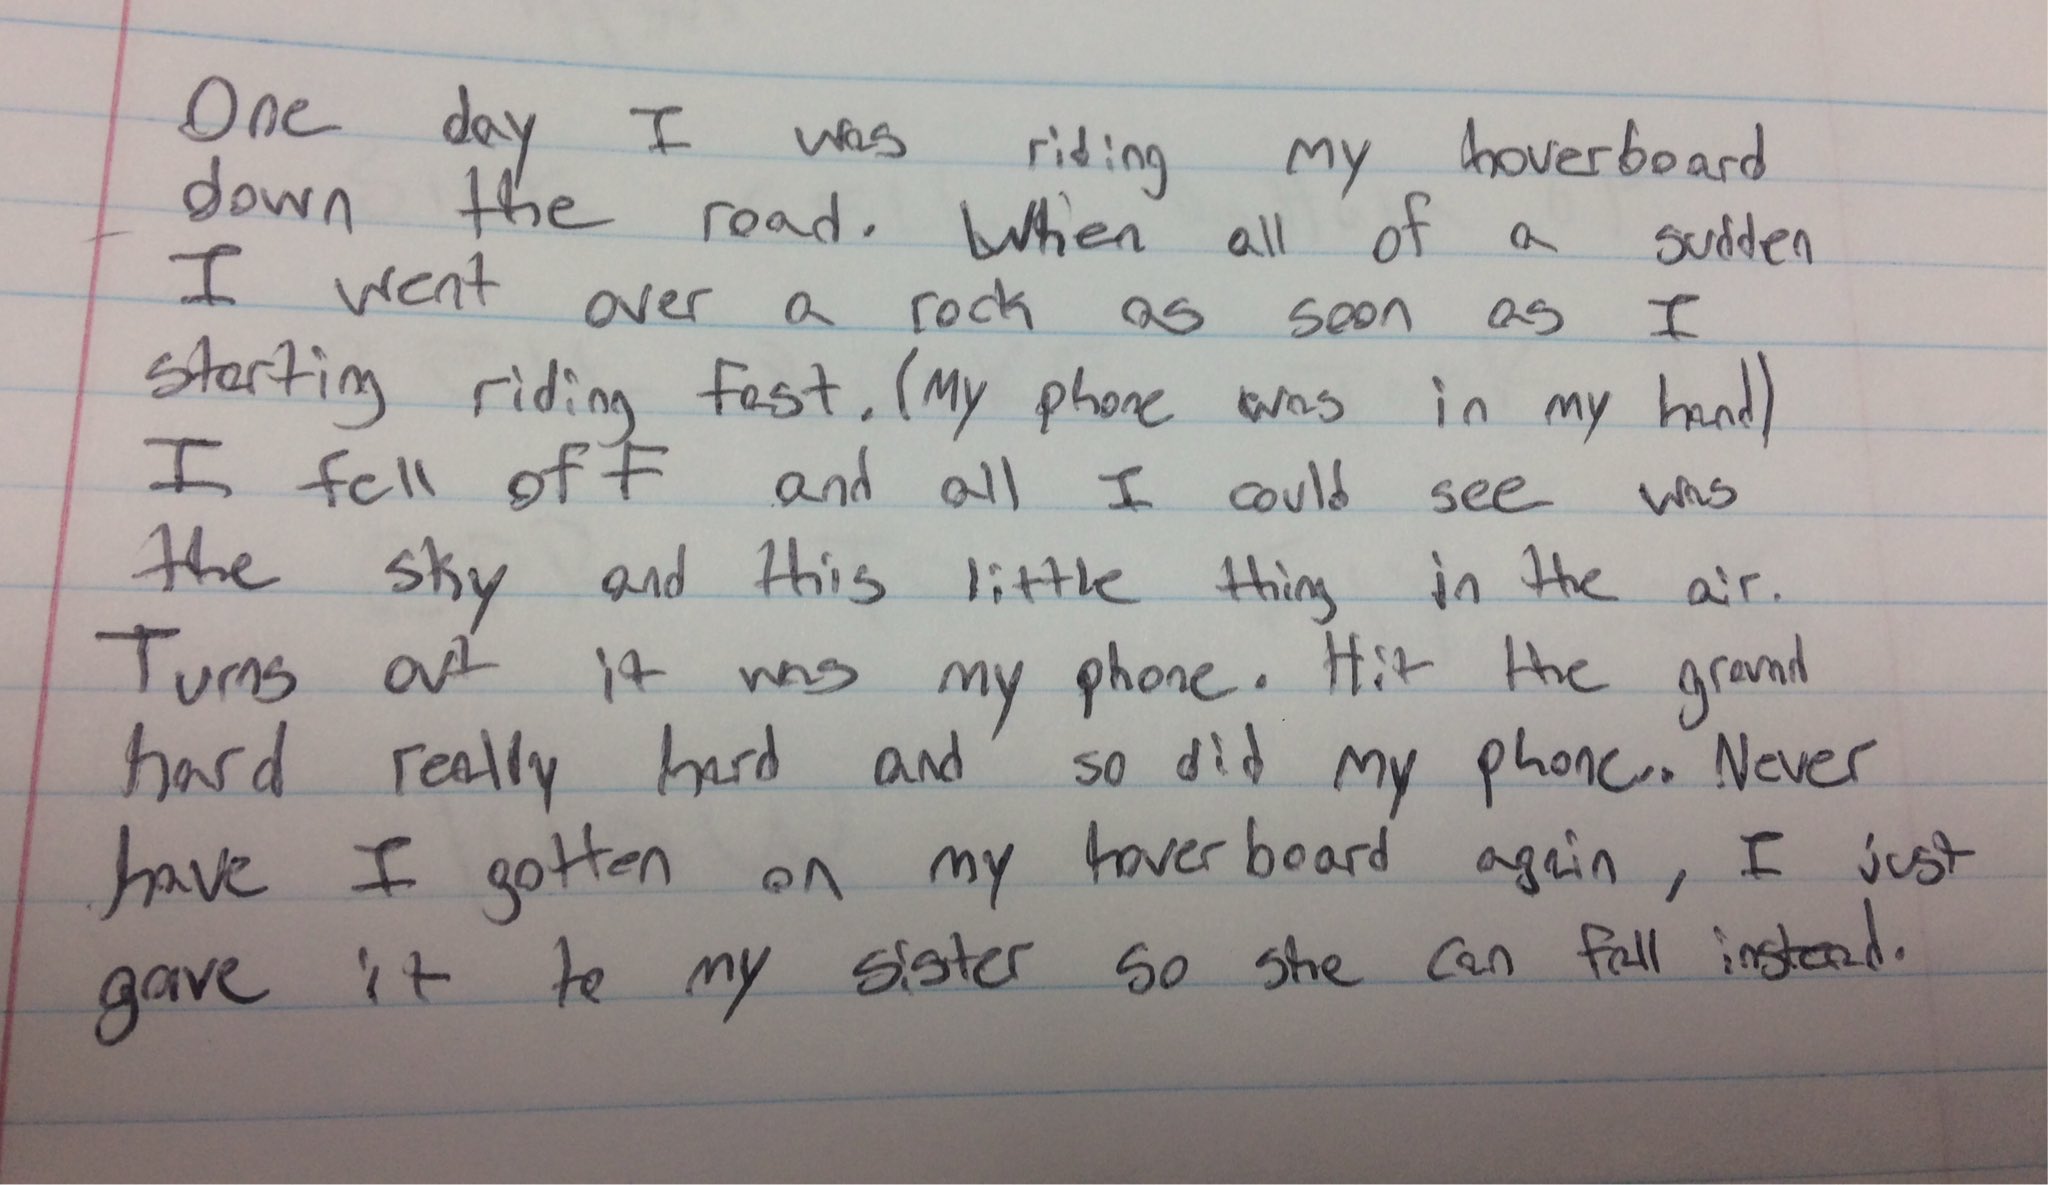 One day I was riding my hoverboard
down the road. When all of a sudden
I went over a rock as soon as I
starting riding fast. (My phone was in my hand)
I fell off and all I could see was
the sky and this little thing in the air.
Turns out it was my phone. Hit the ground
hard really hard and so did my phone.. Never
have I gotten on my hoverboard again, I just
gave it to my sister so she can fall instead.